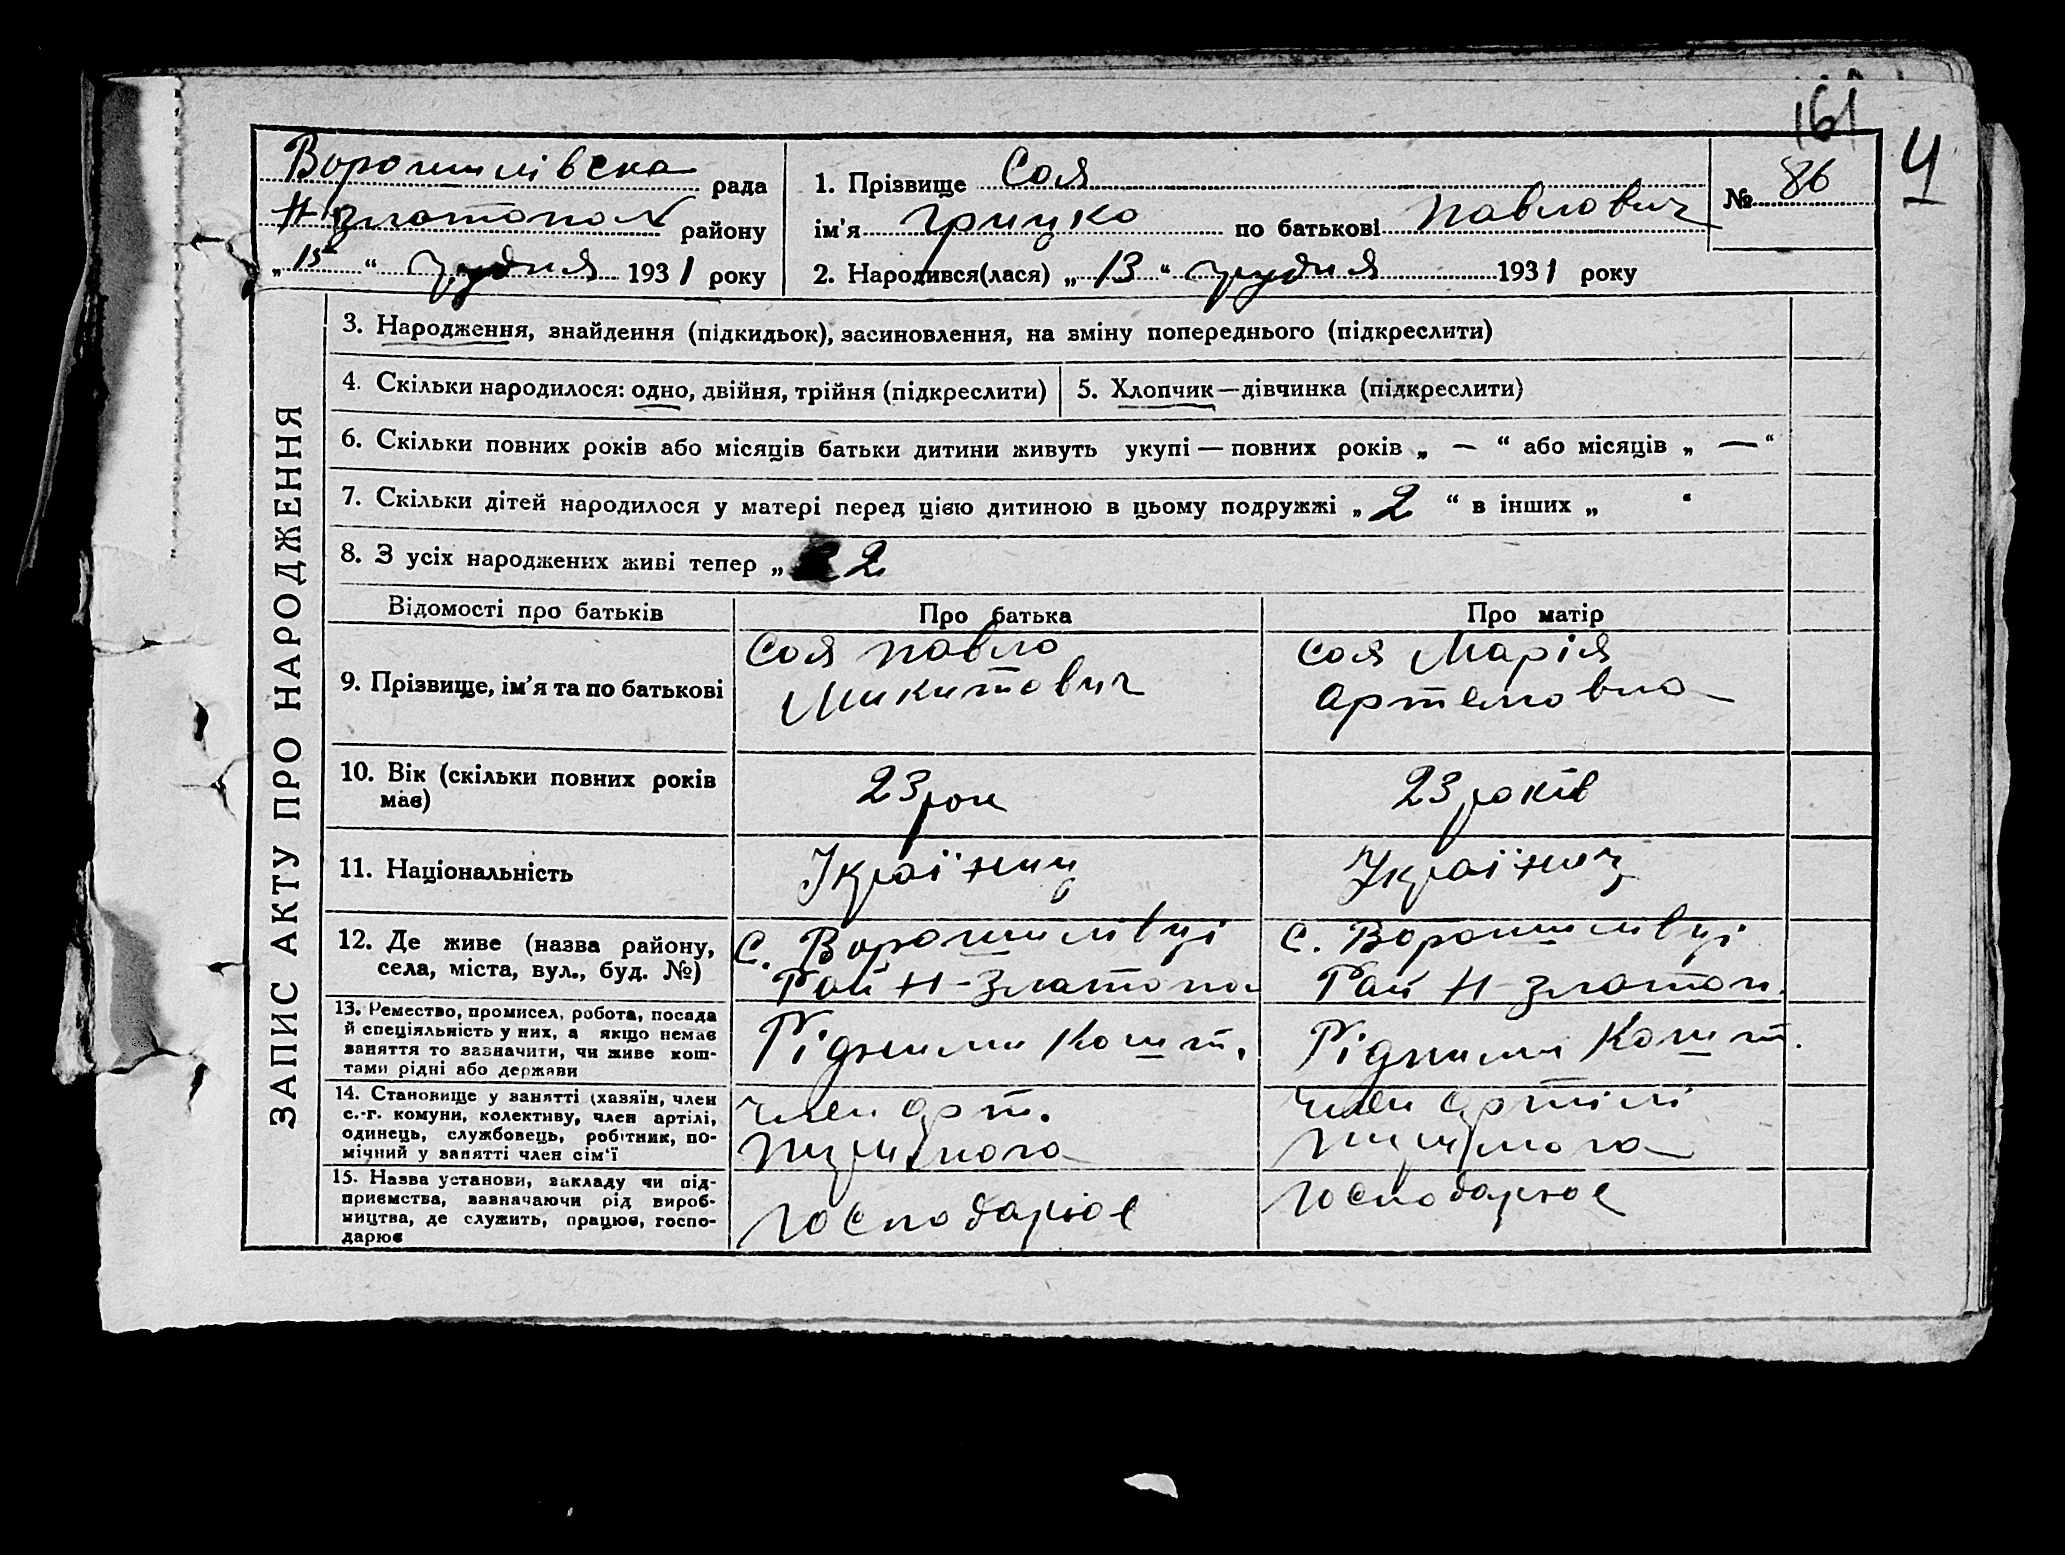 161
Ч
Ворошилівська рада
Н златопол району
„ 15 “ грудня 1931 року
1. Прізвище Соя
ім'я Грицко по батькові Павлович
№ 86
2. Народився(лася) „ 13 “ грудня 1931 року
ЗАПИС АКТУ ПРО НАРОДЖЕННЯ
3. Народження, знайдення (підкидьок), засиновлення, на зміну попереднього (підкреслити)
4. Скільки народилося: одно, двійня, трійня (підкреслити)
5. Хлопчик—дівчинка (підкреслити)
6. Скільки повних років або місяців батьки дитини живуть укупі — повних років „ — “ або місяців „ — “
7. Скільки дітей народилося у матері перед цією дитиною в цьому подружжі „ 2 “ в інших „ “
8. З усіх народжених живі тепер „ 2
Відомості про батьків
Про батька
Про матір
9. Прізвище, ім'я та по батькові
Соя Павло
Микитович
Соя Марія
Артемовна
10. Вік (скільки повних років
має)
23 рок
23 років
11. Національність
Українец
Українец
12. Де живе (назва району,
села, міста, вул., буд. №)
С. Ворошилівці
Рай Н-Златопол
С. Ворошилівці
Рай Н-Златоп.
13. Ремество, промисел, робота, посада
й спеціяльність у них, а якщо немає
заняття то зазначити, чи живе кош-
тами рідні або держави
Рідними Кошт.
Рідними Кошт.
14. Становище у занятті (хазяїн, член
с.-г. комуни, колективу, член артілі,
одинець, службовець, робітник, по-
мічний у занятті член сім'ї
член арт.
член артілі
15. Назва установи, закладу чи під-
приємства, зазначаючи рід вироб-
ництва, де служить, працює, госпо-
дарює
господарює
господарює